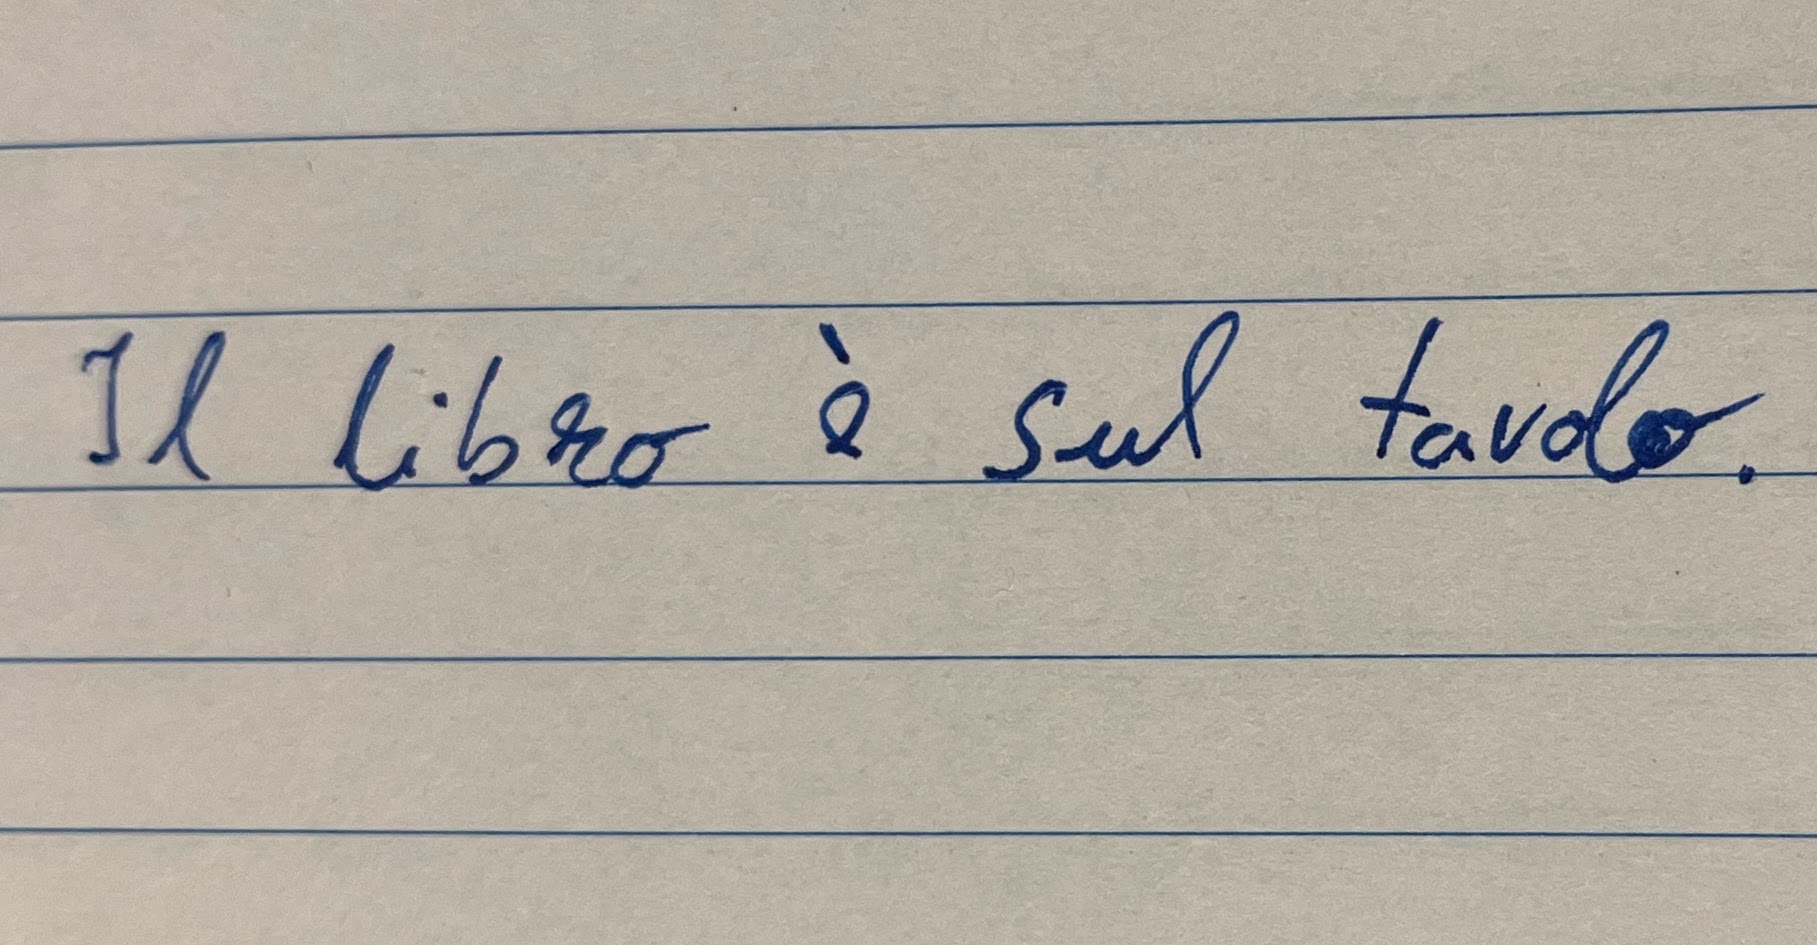 Il libro è sul tavolo.